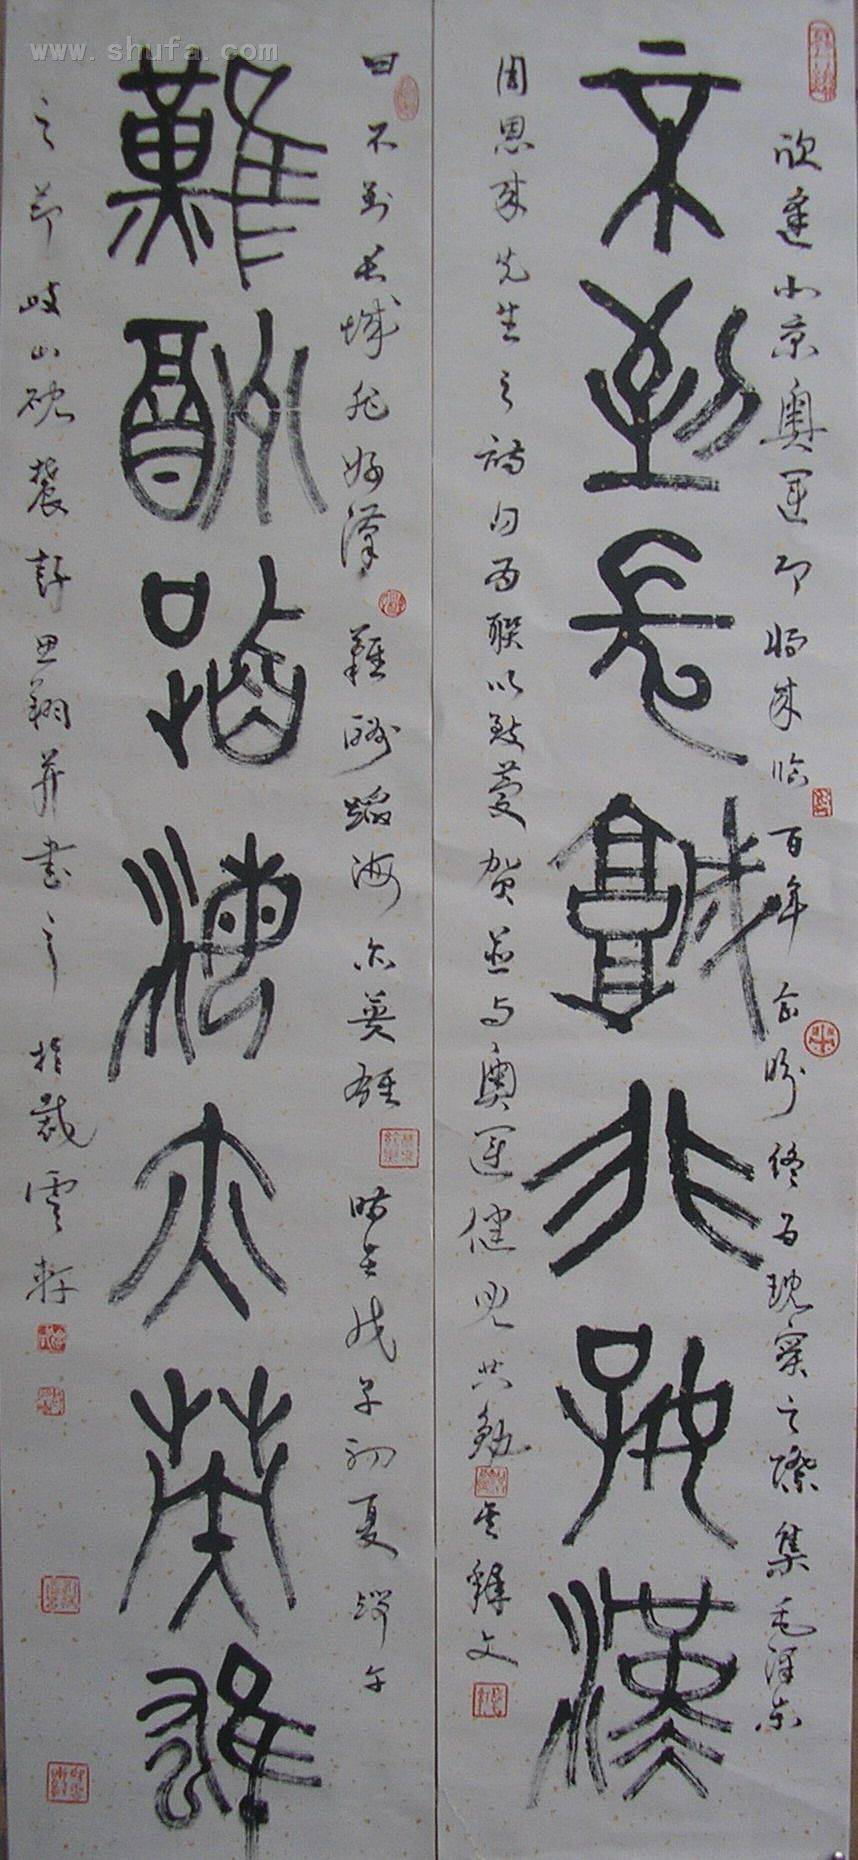 不到长城非好汉
难酬蹈海亦英雄
欣逢北京奥运即将来临百年企盼终为现实之际集毛泽东
周恩来先生之诗句为联以致庆贺并与奥运健儿共勉其释文
曰不到长城非好汉难酬蹈海亦英雄时在戊子初夏端午
之节岐山砚农彭思翔并书之于裁云轩
www.shufa.com